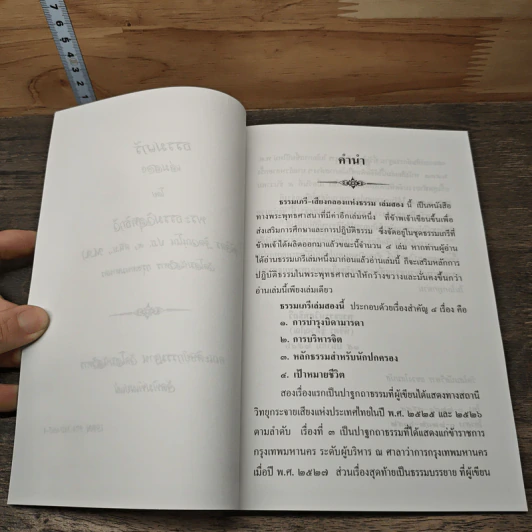 7 6 5 4 3 2 1
คำนำ
ธรรมเภรี-เสียงกลองแห่งธรรม เล่มสอง นี้ เป็นหนังสือ
ทางพระพุทธศาสนาที่มีค่าอีกเล่มหนึ่ง ที่ข้าพเจ้าเขียนขึ้นเพื่อ
ส่งเสริมการศึกษาและการปฏิบัติธรรม ซึ่งจัดอยู่ในชุดธรรมเภรีที่
ข้าพเจ้าได้ผลิตออกมาแล้วขณะนี้จำนวน ๔ เล่ม หากท่านผู้อ่าน
ได้อ่านธรรมเภรีเล่มหนึ่งมาก่อนแล้วอ่านเล่มนี้ ก็จะเสริมหลักการ
ปฏิบัติธรรมในพระพุทธศาสนาให้กว้างขวางและมั่นคงขึ้นกว่า
อ่านเล่มนี้เพียงเล่มเดียว
ธรรมเภรีเล่มสองนี้ ประกอบด้วยเรื่องสำคัญ ๔ เรื่อง คือ
๑. การบำรุงบิดามารดา
๒. การบริหารจิต
๓. หลักธรรมสำหรับนักปกครอง
๔. เป้าหมายชีวิต
สองเรื่องแรกเป็นปาฐกถาธรรมที่ผู้เขียนได้แสดงทางสถานี
วิทยุกระจายเสียงแห่งประเทศไทยในปี พ.ศ. ๒๕๒๕ และ ๒๕๒๖
ตามลำดับ เรื่องที่ ๓ เป็นปาฐกถาธรรมที่ได้แสดงแก่ข้าราชการ
กรุงเทพมหานคร ระดับผู้บริหาร ณ ศาลาว่าการกรุงเทพมหานคร
เมื่อปี พ.ศ. ๒๕๒๗ ส่วนเรื่องสุดท้ายเป็นธรรมบรรยาย ที่ผู้เขียน